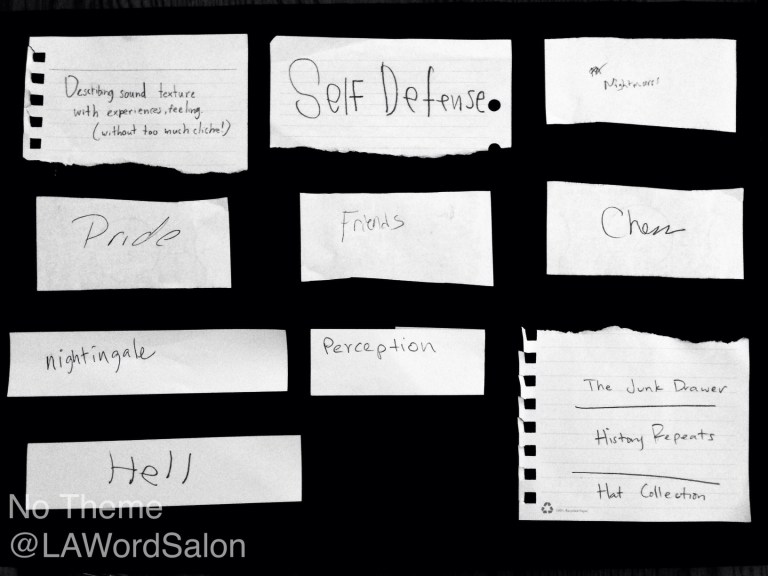 Describing sound texture
with experiences, feeling
(without too much cliche!)
Self Defense
Pride
Friends
Chess
nightingale
Perception
The Junk Drawer
History Repeats
Hat Collection
Hell
No Theme
@LAWordSalon